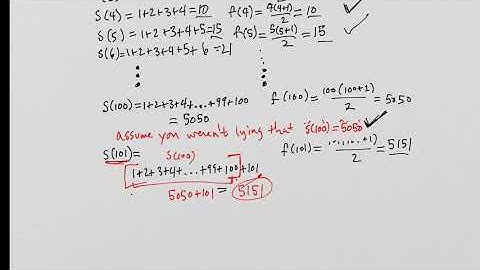 S(4) = 1+2+3+4 = 10 f(4) = 4(4+1)/2 = 10 ✓
S(5) = 1+2+3+4+5 = 15 f(5) = 5(5+1)/2 = 15 ✓
S(6) = 1+2+3+4+5+6 = 21
S(100) = 1+2+3+4+...+99+100 f(100) = 100(100+1)/2 = 5050
= 5050
assume you weren't lying that "S(100) = 5050" ✓
S(101) = S(100) f(101) = +1)/2 = 5151
1+2+3+4+...+99+100+101
5050+101 = 5151